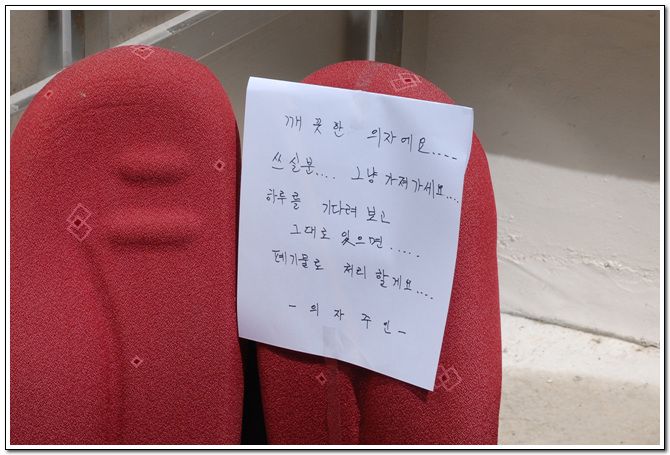 깨끗한 의자에요....
쓰실분.... 그냥 가져가세요....
하루를 기다려 보고
그대로 있으면.....
폐기물로 처리 할게요....
- 의자주인 -